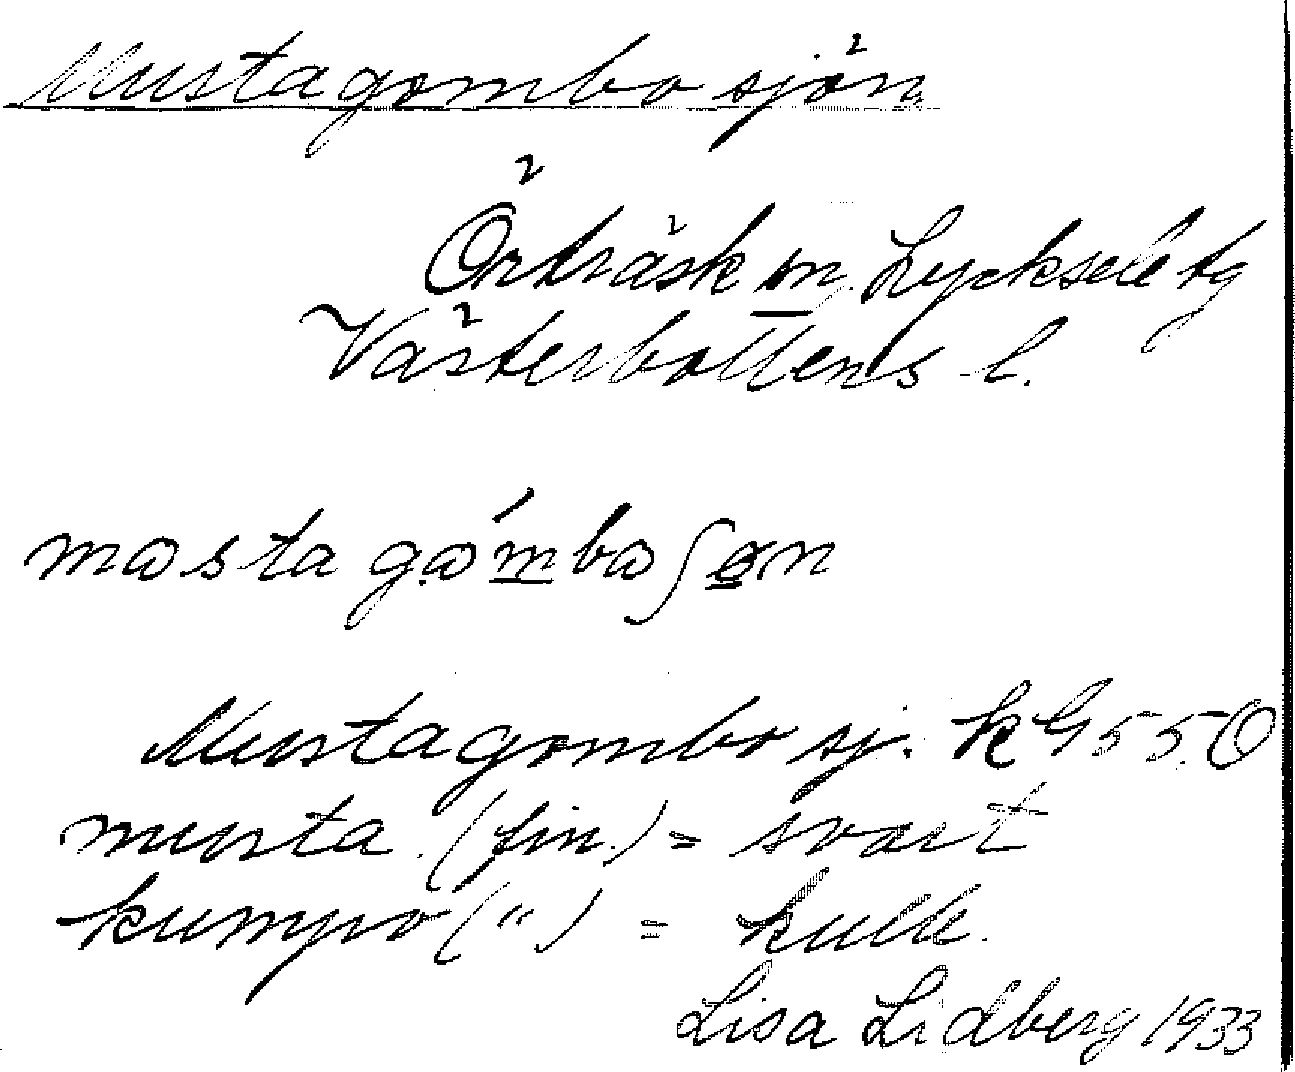 Mustagombosjön
Örträsk sn. Lycksele tg
Västerbottens l.
mɷstagɷ́mbɷʃɵn
Mustagombosj. k 455.O
musta (fin.) = svart
kumpo (") = kulle.
Lisa Lidberg 1933